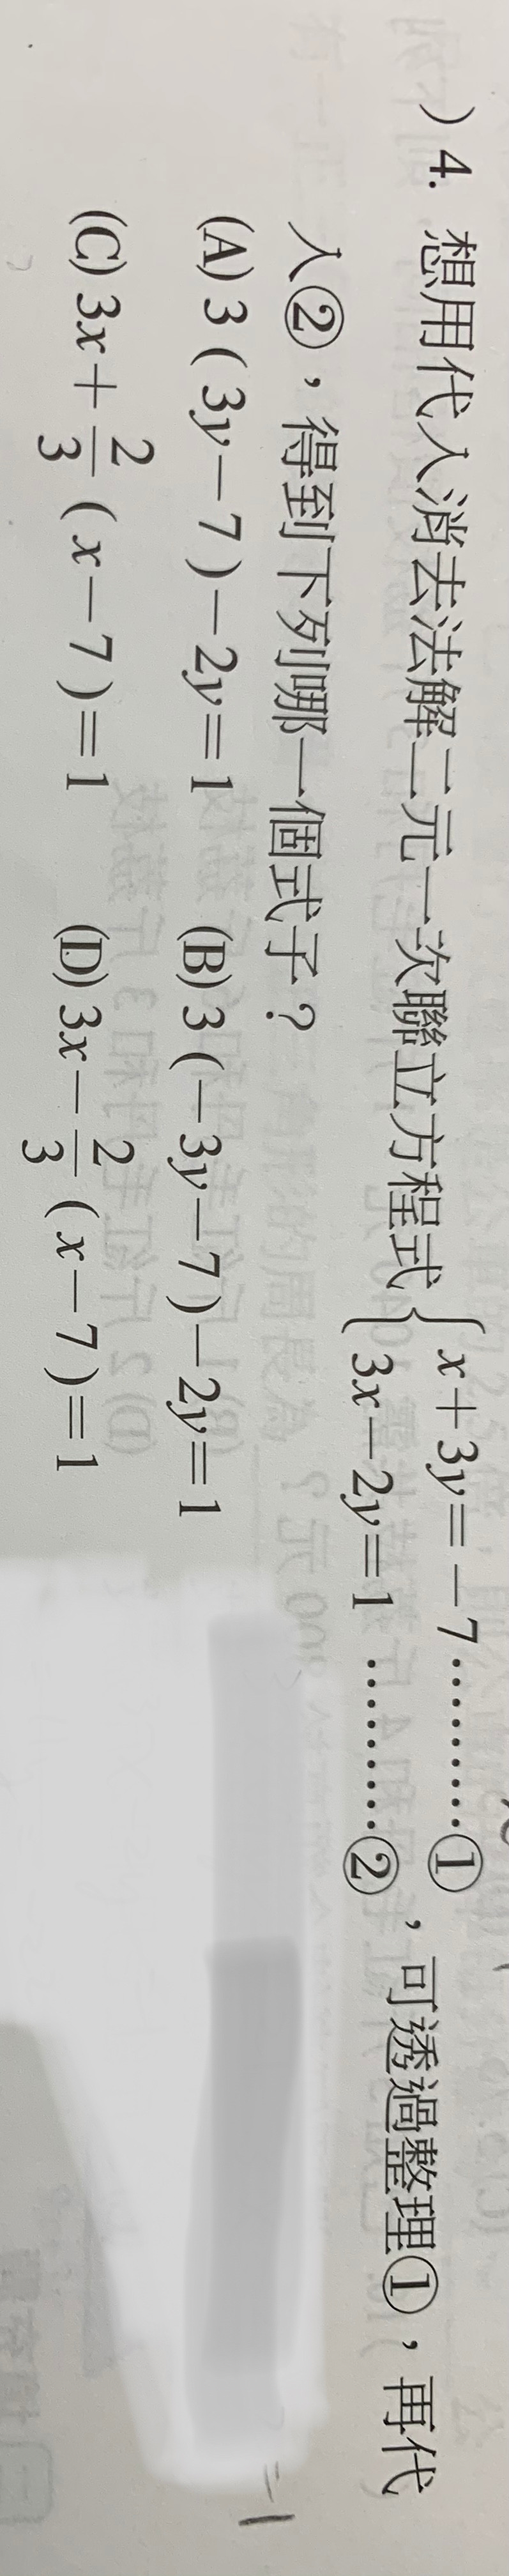 ) 4. 想用代入消去法解二元一次聯立方程式{x+3y=-7………①
3x-2y=1………②，可透過整理①，再代
入②，得到下列哪一個式子？
(A) 3(3y-7)-2y=1 (B) 3(-3y-7)-2y=1
(C) 3x+2/3(x-7)=1 (D) 3x-2/3(x-7)=1
=1